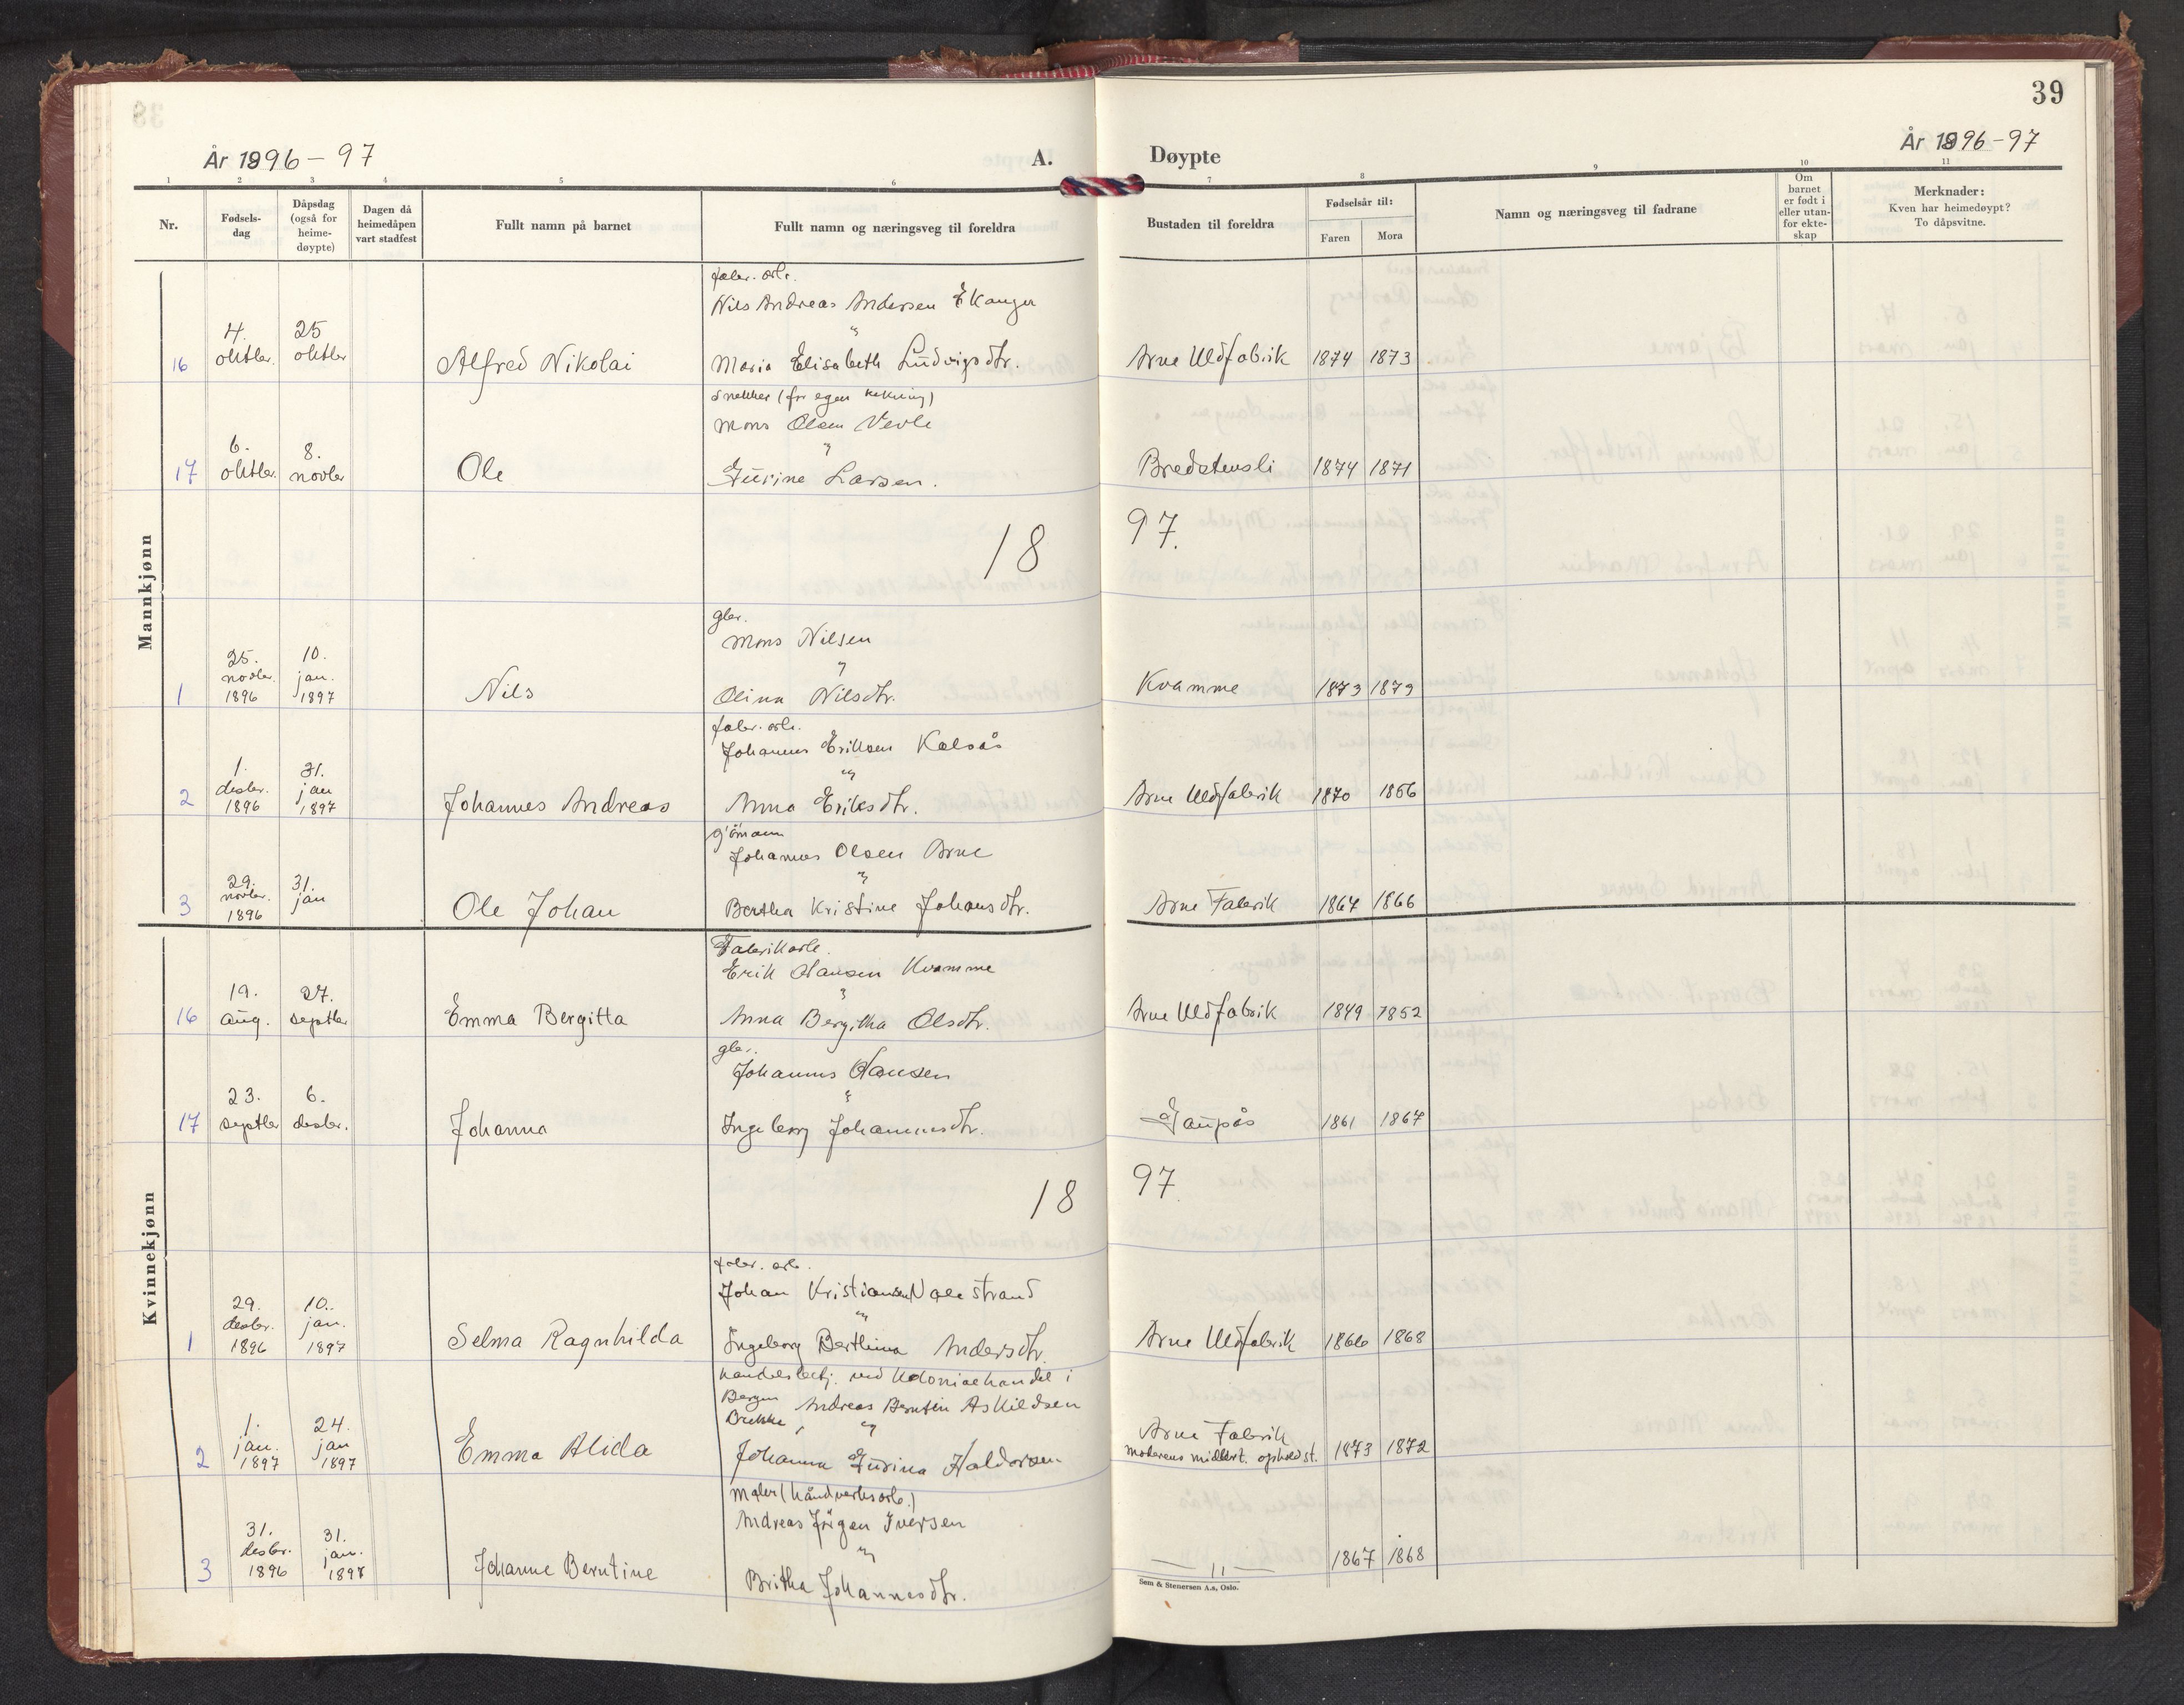 39
År 1896-97
A.
Døypte
År 1896-97
1 2 3 4 5 6 7 8 9 10 11
Nr.
Fødsels-
dag
Dåpsdag
(også for
heime-
døypte)
Dagen då
heimedåpen
vart stadfest
Fullt namn på barnet
Fullt namn og næringsveg til foreldra
Bustaden til foreldra
Fødselsår til:
Faren
Mora
Namn og næringsveg til fadrane
Om
barnet
er født i
eller utan-
for ekte-
skap
Merknader:
Kven har heimedøypt?
To dåpsvitne.
Mannkjønn
fabr. arb.
Nils Andreas Andersen Ekanger
16 4. oktbr. 25 oktbr Alfred Nikolai Maria Elisabeth Ludvigsdtr. Arne Uldfabrik 1874 1873
Snekker (for egen rekning)
Mons Olsen Vevle
17 6. oktbr. 8. novbr Ole Gurine Larsen. Bredstensli 1874 1871
18 97.
gbr.
Mons Nilsen
1 25. novbr. 1896 10. jan. 1897 Nils Olina Nilsdtr. Kvamme 1873 1879
fabr. arb.
Johannes Eriksen Kalsås
2 1. desbr. 1896 31. jan 1897 Johannes Andreas Anna Eriksdtr. Arne Uldfabrik 1870 1866
Johannes Olsen Arne
3 29. novbr. 1896 31. jan Ole Johan Bertha Kristine Johansdtr. Arne Fabrik 1867 1866
Kvinnekjønn
Fabrikarb.
Erik Hansen Kvamme
16 19. aug. 27. septbr Emma Bergitta Anna Bergitha Olsdtr. Arne Uldfabrik 1849 1852
gbr.
Johannes Hansen
17 23. septbr 6. desbr. Johanna Ingeborg Johannesdtr. Gaupås 1861 1867
18 97.
fabr. arb.
Johan Kristiansen Valestrand
1 29. desbr. 1896 10. jan. 1897 Selma Ragnhilda Ingeborg Berthina Andersdtr. Arne Uldfabrik 1866 1868
handelsbetj. ved Koloniaehandel i
Bergen Andreas Berntin Askildsen
Brekke,
2 1. jan. 1897 24. jan 1897 Emma Alida Johanna Gurina Haldorsen Arne Fabrik
moderens midlert. opholdst. 1873 1872
Maler (håndverksarb.)
Andreas Jörgen Iversen
3 31. desbr. 1896 31. jan. 1897 Johanne Berntine Britha Johannesdtr. — 11 — 1867 1868
Sem & Stenersen A.s, Oslo.